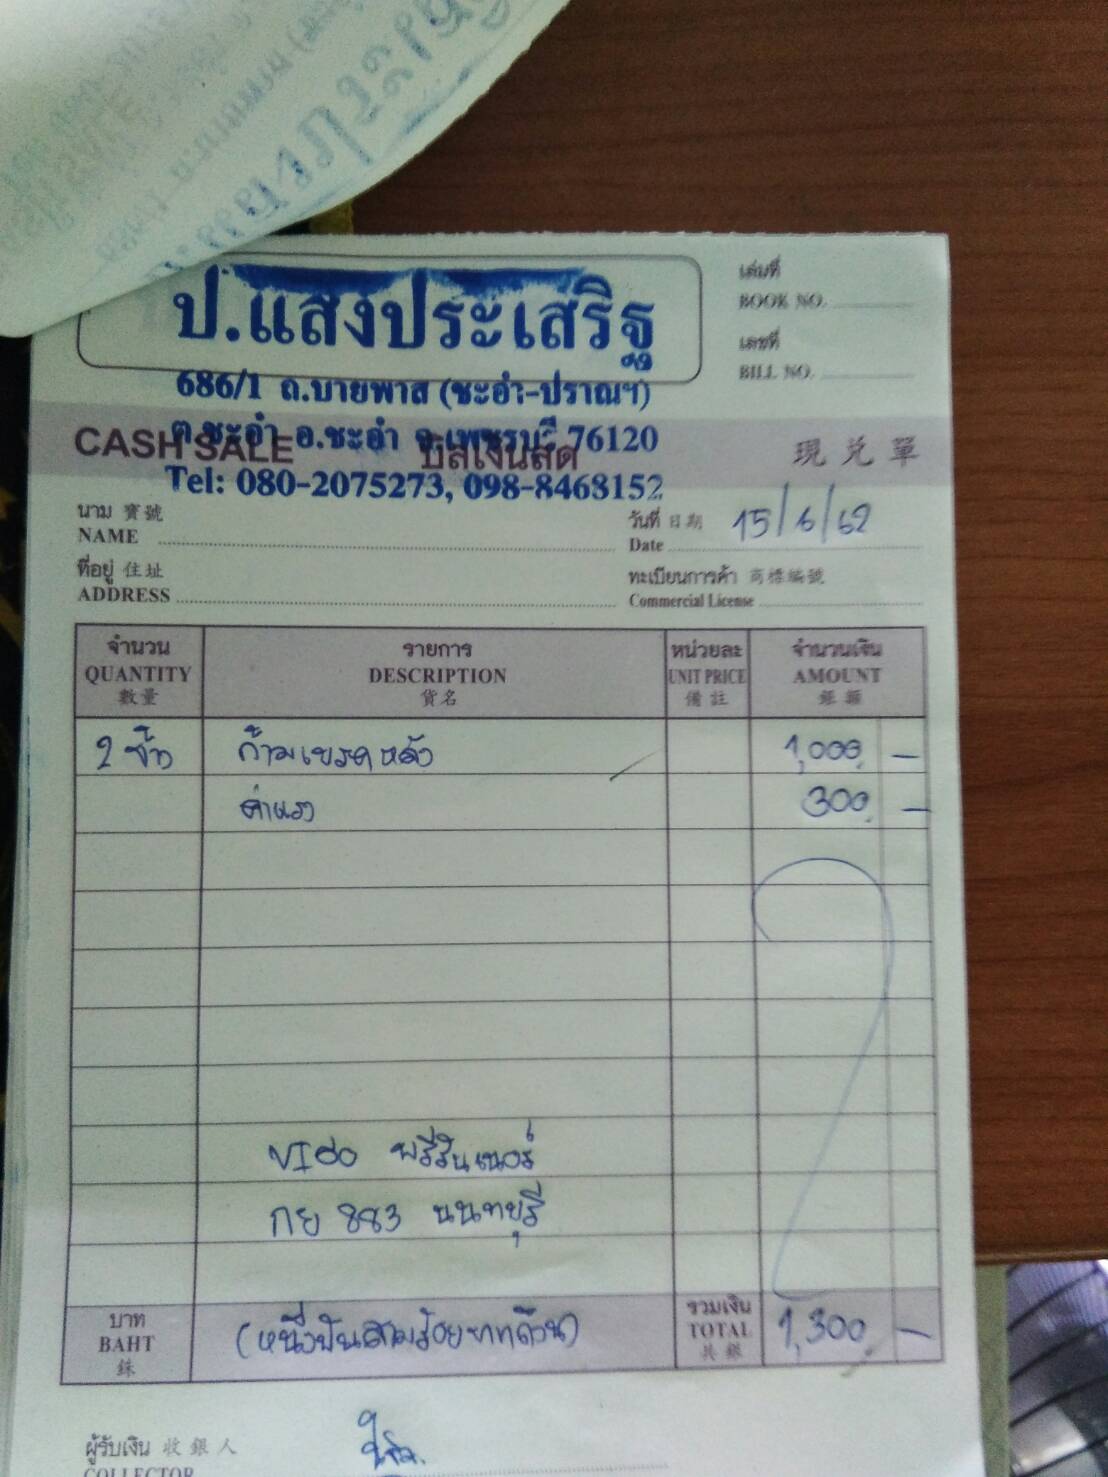 ป.แสงประเสริฐ
686/1 ถ.บายพาส (ชะอำ-ปราณฯ)
ต.ชะอำ อ.ชะอำ จ.เพชรบุรี 76120
Tel: 080-2075273, 098-8468152
เล่มที่
BOOK NO.
เลขที่
BILL NO.
CASH SALE บิลเงินสด 現兌單
นาม 寳號
NAME
วันที่ 日期 15/6/62
Date
ที่อยู่ 住址
ADDRESS
ทะเบียนการค้า 商標編號
Commercial License
จำนวน รายการ หน่วยละ จำนวนเงิน
QUANTITY DESCRIPTION UNIT PRICE AMOUNT
數量 貨名 備註 銀額
2 ชิ้น ก้ามเบรคหลัง 1,000 -
ค่าแรง 300 -
วีโก้ พรีรันเนอร์
กย 883 นนทบุรี
บาท (หนึ่งพันสามร้อยบาทถ้วน) รวมเงิน 1,300 -
BAHT TOTAL
銖 共銀
ผู้รับเงิน 收銀人
COLLECTOR